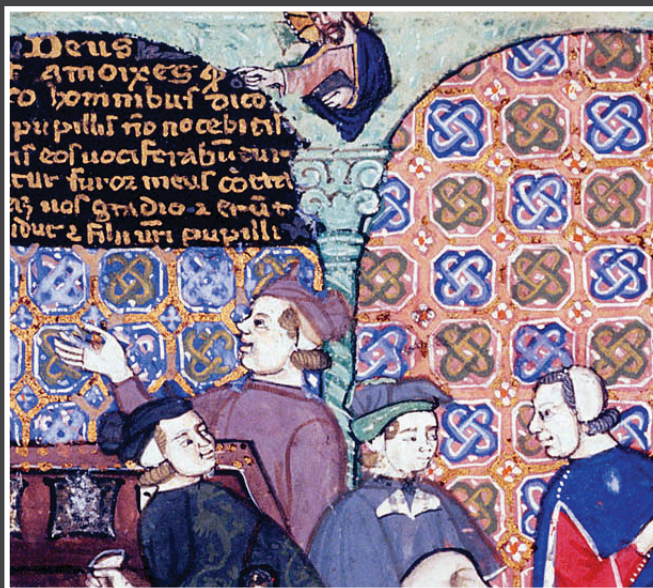 Deus
amoixes
hominibus dico
pupillis no nocebitis
eos uociferabuntur
tur furor meus cotra
uos gladio 2 erut
2 filii uri pupilli